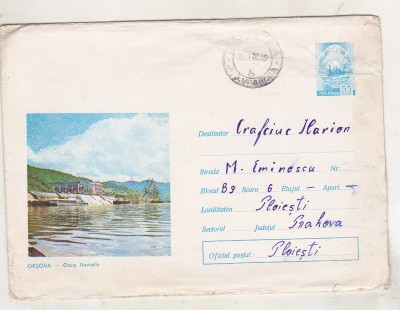 55
Destinatar Crafciuc Ilarion
Strada M. Eminescu Nr.
Blocul B9 Scara 6 Etajul — Apart. —
Localitatea Ploiești
Sectorul Județul Prahova
Oficiul poștal: Ploiești
ORȘOVA — Gara fluvială